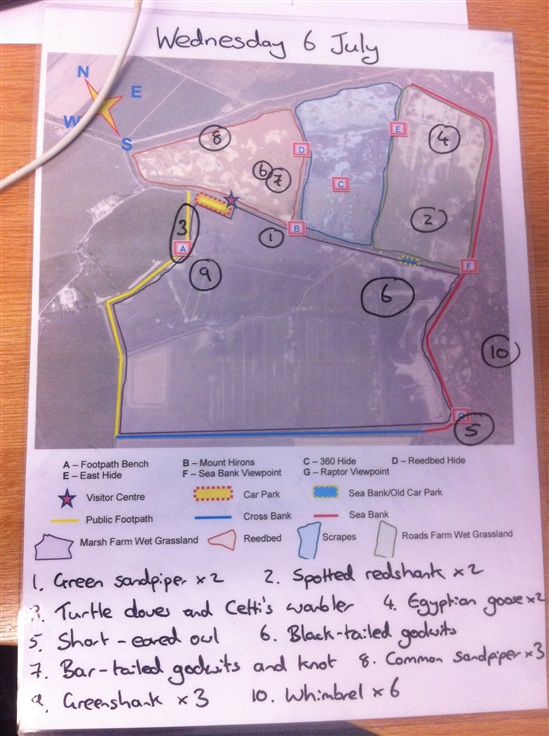 Wednesday 6 July
N
E
W
S
8
4
E
D
6
7
C
3
2
B
1
A
F
9
6
10
5
A – Footpath Bench B – Mount Hirons C – 360 Hide D – Reedbed Hide
E – East Hide F – Sea Bank Viewpoint G – Raptor Viewpoint
Visitor Centre Car Park Sea Bank/Old Car Park
Public Footpath Cross Bank Sea Bank
Marsh Farm Wet Grassland Reedbed Scrapes Roads Farm Wet Grassland
1. Green sandpiper x2 2. Spotted redshank x2
3. Turtle doves and Cetti's warbler 4. Egyptian goose x2
5. Short-eared owl 6. Black-tailed godwits
7. Bar-tailed godwits and knot 8. Common sandpiper x3
9. Greenshank x3 10. Whimbrel x6